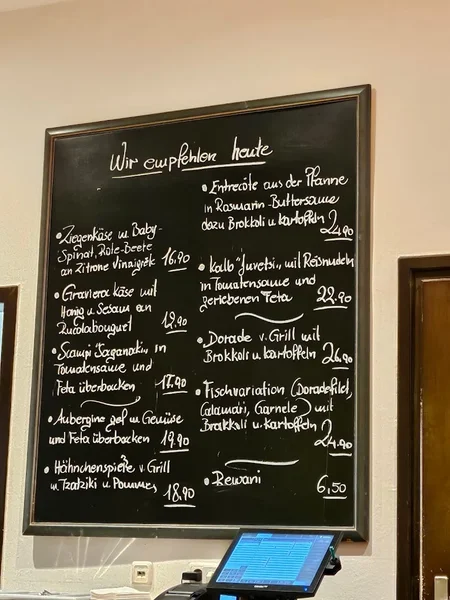 Wir empfehlen heute
• Ziegenkäse u Baby-
Spinat, Rote-Beete
an Zitrone Vinaigrete 16.90
• Graviera käse mit
Honig u Sesam an
Rucolabouquet 12.90
• Scampi "Saganaki" in
Tomatensauce und
Feta überbacken 17.90
• Aubergine gef m Gemüse
und Feta überbacken 19.90
• Hähnchenspieße v. Grill
m Tzatziki u Pommes 18.90
• Entrecôte aus der Pfanne
in Rosmarin-Buttersauce
dazu Brokkoli u kartoffeln 24.90
• kalb "Juvetsi" mit Reisnudeln
in Tomatensauce und
geriebenen Feta 22.90
• Dorade v. Grill mit
Brokkoli u. kartoffeln 26.90
• Fischvariation (Doradefilet,
Calamari, Garnele) mit
Brokkoli u. kartoffeln 24.90
• Rewani 6,50